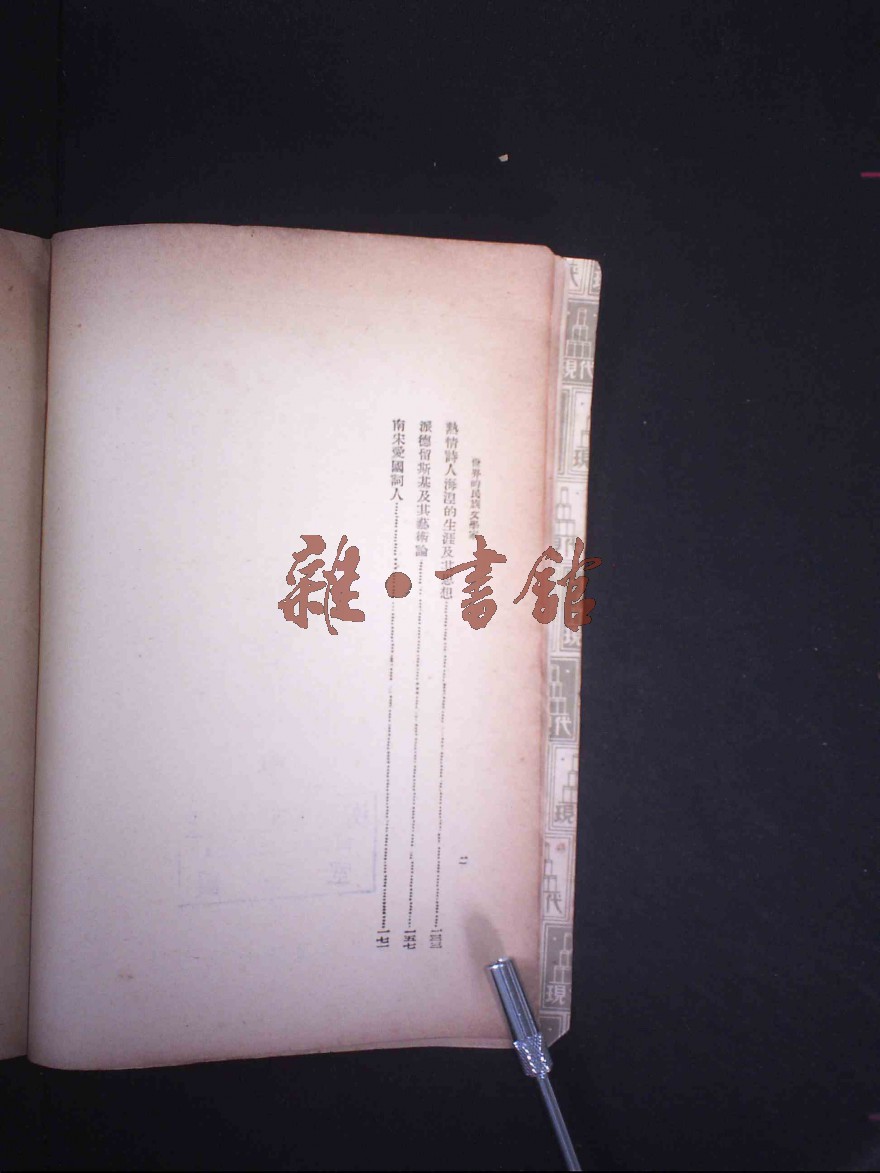 世界的民族文學家
二
熱情詩人海涅的生涯及其思想……一三三
派德留斯基及其藝術論……一五七
南宋愛國詞人……一七一
雜·書館
現代
現
現